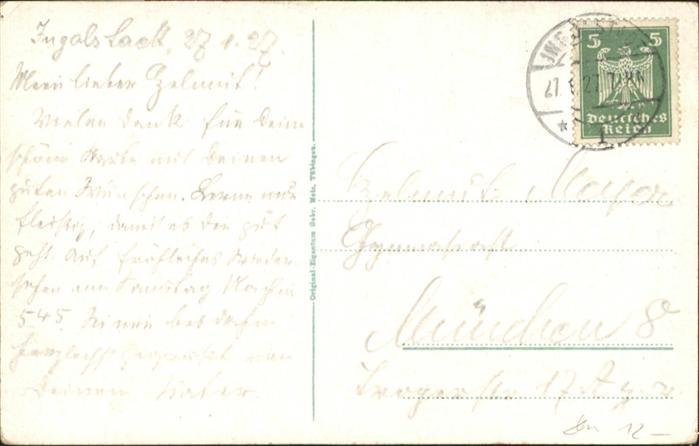 Ingolstadt, 27.1.27.
Mein lieber Helmut!
Vielen Dank für Deine
schöne Karte mit Deinen
guten Wünschen. Lerne nur
fleißig, damit es Dir gut
geht. Auf fröhliches Wieder-
sehen am Samstag Nachm
5 45. Sei
herzlichst gegrüßt von
Deinem Vater.
Original-Eigentum Gebr. Metz, Tübingen.
5 5
Deutsches
Reich
Helmut Mayer
Gymnasiast
München 8
17
12-